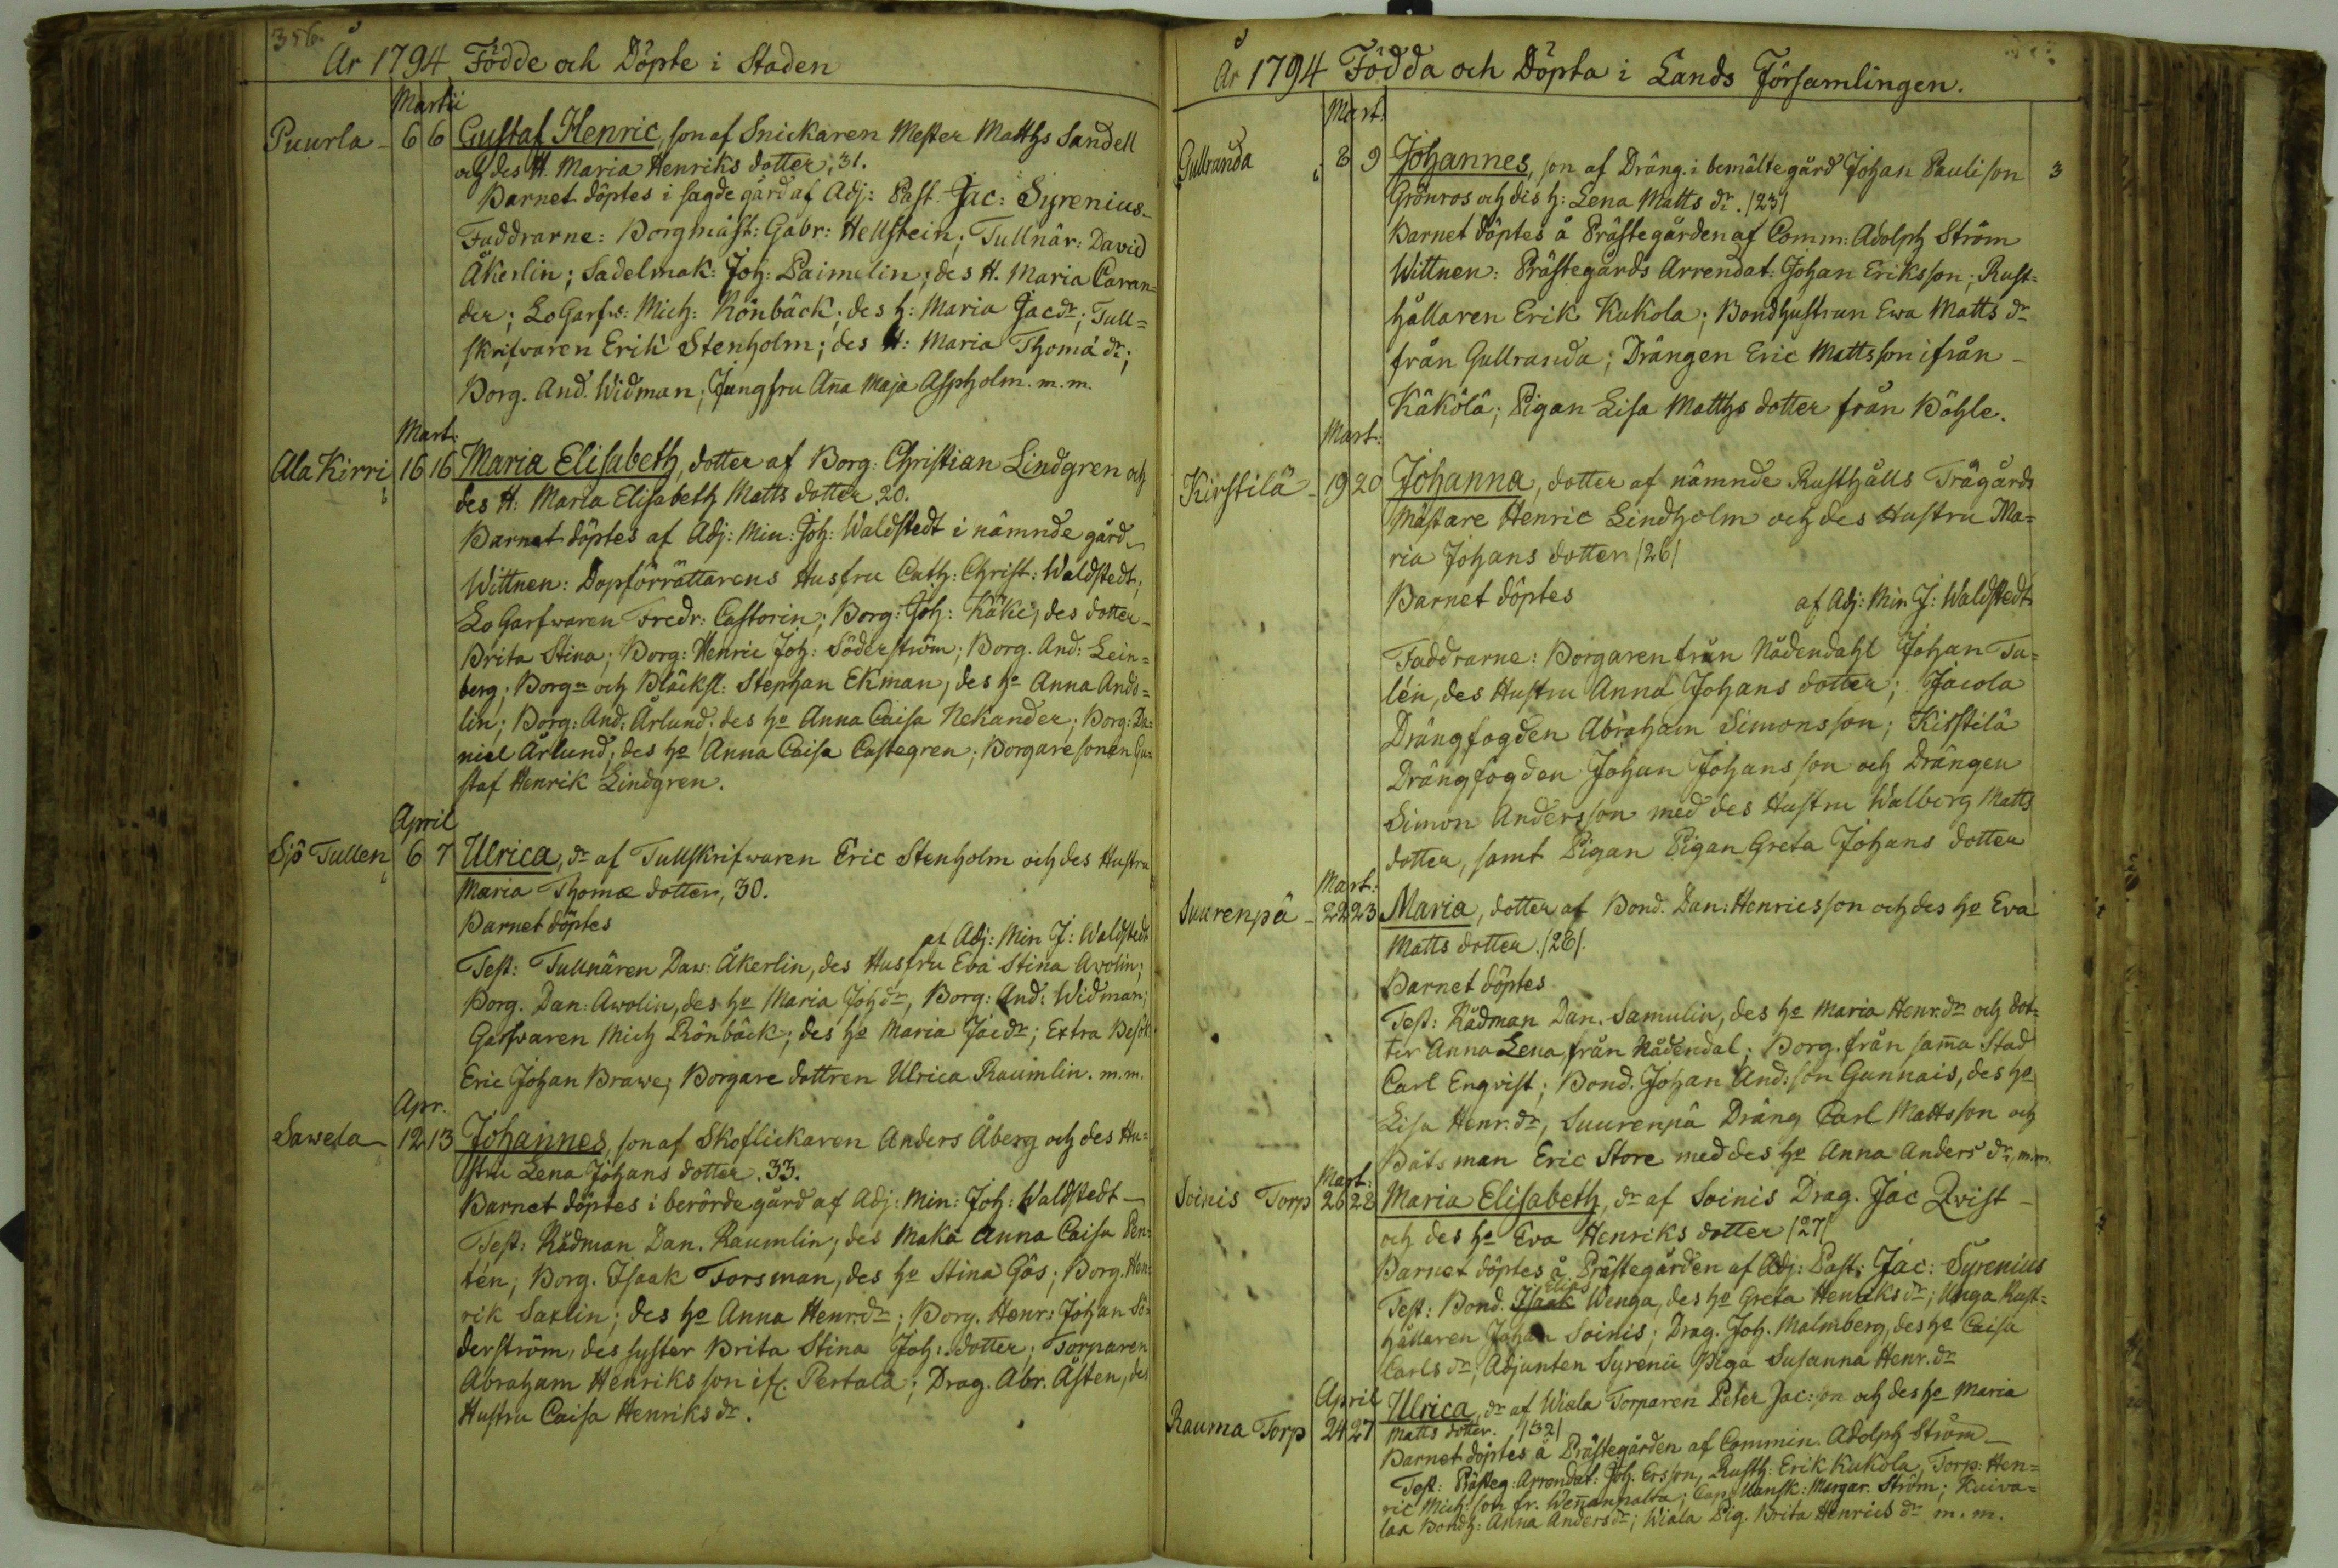 356.
År 1794 Födde och Döpte i Staden
Martii
Puurla - 6 6 Gustaf Henric, son af Snickaren Mester Matths Sandell
och des H. Maria Henriks dotter, 31.
Barnet döptes i sagde gård af Adj: Past. Jac: Syrenius-
Faddrarne: Borgmäst: Gabr: Hellstein; Tullnär: David
Åkerlin; Sadelmak: Joh: Paimelin; des H. Maria Caran=
der; LoGarfv: Mich: Rönbäck; des h: Maria Jacdr; Tull=
skrifvaren Erik Stenholm; des H: Maria Thomä dr;
Borg. And. Widman; Jungfru Ana Maja Aspholm. m.m.
Mart:
Ala Kirri 16 16 Maria Elisabeth, dotter af Borg: Christian Lindgren och
des H: Maria Elisabeth Matts dotter, 20.
Barnet döptes af Adj: Min: Joh: Waldstedt i nämnde gård-
Wittnen: Dopförrättarens Husfru Cath: Christ: Waldstedt;
LoGarfwaren Fredr: Castorin; Borg: Joh: Käki; des dotter-
Brita Stina; Borg: Henric Joh: Söderström; Borg. And: Lein=
berg; Borgn och Bläcksl: Stephan Ekman, des ho Anna Ando=
lin; Borg: And: Arlund; des ho Anna Caisa Nekander; Borg: Da=
niel Årlund; des ho Anna Caisa Castegren; Borgare sonen Gu=
staf Henrik Lindgren.
April
Sjö Tullen 6 7 Ulrica, dr af Tullskrifwaren Eric Stenholm och des Hustru
Maria Thomæ dotter, 30.
Barnet döptes
af Adj: Min J: Waldstedt
Test: Tullnären Daw: Åkerlin, des Husfru Eva Stina Awolin;
Borg. Dan: Awolin, des ho Maria Joh dr, Borg: And: Widman;
Garfvaren Mich Rönbäck; des ho Maria Jac dr; Extra Besök
Eric Johan Brawe; Borgare dottren Ulrica Raumlin. m.m.
Apr.
Sawela - 12 13 Johannes, son af Skoflickaren Anders Åberg och des Hu=
stru Lena Johans dotter. 33.
Barnet döptes i berörde gård af Adj: Min: Joh: Waldstedt -
Test: Rådman Dan. Raumlin; des Maka Anna Caisa Pen=
tén; Borg. Isaak Forsman, des ho Stina Gås; Borg. Hen=
rik Saxlin; des ho Anna Henr. dr; Borg. Henr: Johan Sö=
derström, des syster Brita Stina Joh: dotter; Torparen
Abraham Henriksson ifr. Pertala; Drag. Abr. Åsten, des
Hustru Caisa Henriks dr.
År 1794 Födda och Döpta i Lands Församlingen.
Mart.
Gullranda 8 9 Johannes, son af Dräng. i bemälte gård Johan Paulison 3
Grönros och des h: Lena Matts dr. /23/
Barnet döptes å Prästegården af Comm: Adolph Ström
Wittnen: Prästegårds Arrendat: Johan Eriksson; Rust=
hållaren Erik Kukola; Bondhustrun Ewa Matts dr
från Gullranda; Drängen Eric Mattsson ifrån -
Käkölä; Pigan Lisa Matths dotter från Böhle.
Mart:
Kirstilä - 19 20 Johanna, dotter af nämnde Rusthålls Trägårds
Mästare Henric Lindholm och des Hustru Ma=
ria Johans dotter /26/
Barnet döptes af Adj: Min J: Waldstedt
Faddrarne: Borgaren från Nådendahl Johan Tu=
lén, des Hustru Anna Johans dotter; Jacola
Drängfogden Abraham Simonsson; Kirstilä
Drängfogden Johan Johansson och Drängen
Simon Andersson med des Hustru Walborg Matts
dotter, samt Pigan Pigan Greta Johans dotter
Mart:
Suurenpä - 22 23 Maria, dotter af Bond. Dan: Henricsson och des ho Eva
Matts dotter. /28/.
Barnet döptes
Test: Rådman Dan. Samulin, des ho Maria Henr. dr och dot=
ter Anna Lena, från Nådendal; Borg. från sama Stad
Carl Enqvist; Bond. Johan And: son Gunnais, des ho
Lisa Henr. dr, Suurenpä Dräng Carl Mattsson och
Båtsman Eric Store med des ho Anna Anders dr, m.m.
Mart:
Soinis Torp 26 28 Maria Elisabeth, dr af Soinis Drag. Jac Qvist -
och des ho Eva Henriks dotter /27/
Barnet döptes å Prästegården af Adj: Past: Jac: Syrenius
Elias
Test: Bond. Isaak Wenga, des ho Greta Henriks dr; Unga Rust=
hållaren Johan Soinis; Drag. Joh. Malmberg, des ho Caisa
Carls dr; Adjunten Syrenii Piga Susanna Henr. dr
April
Rauma Torp 24 27 Ulrica, dr af Wiala Torparen Peter Jac: son och des ho Maria
Matts dotter. /32/
Barnet döptes å Prästegården af Commin. Adolph Ström -
Test: Prästeg: Arrendat: Joh. Ersson, Rusth: Erik Kukola, Torp: Hen=
ric Mich: son fr. Wenanpalta; Cap: Mansk: Margar. Ström; Kuiva=
laa Bondh: Anna Anders dr; Wiala Pig. Brita Henrics dr m. m.